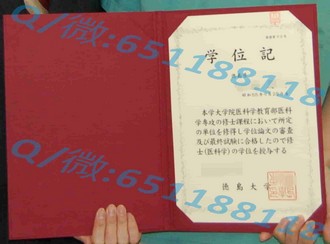 Q/微:6511885118
Q/微:6511885118
Q/微:6511885118
学位記
本学大学院医科学教育部医科
学専攻の修士課程において所定
の単位を修得し学位論文の審査
及び最終試験に合格したので修士
(医科学)の学位を授与する
徳島大学